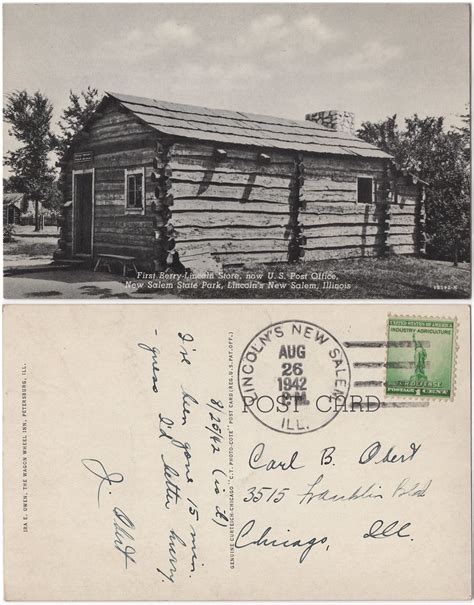 First Berry-Lincoln Store, now U.S. Post Office,
New Salem State Park, Lincoln's New Salem, Illinois
IRA E. OWEN, THE WAGON WHEEL INN, PETERSBURG, ILL.
8/25/42 (is it)
I've been gone 15 min.
guess I'd better hurry
J. Obert
GENUINE CURTEICH-CHICAGO "C.T. PHOTO-COTE" POST CARD (REG. U.S. PAT. OFF.)
LINCOLN'S NEW SALEM
AUG
26
1942
ILL.
UNITED STATES OF AMERICA
INDUSTRY AGRICULTURE
FOR DEFENSE
1 CENT
POST CARD
Carl B. Obert
3515 Franklin Blvd
Chicago, Ill.